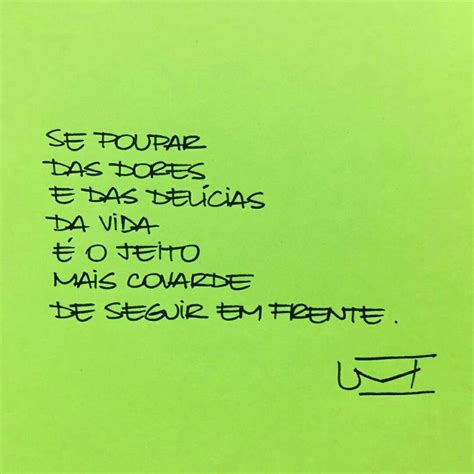 SE POUPAR
DAS DORES
E DAS DELÍCIAS
DA VIDA
É O JEITO
MAIS COVARDE
DE SEGUIR EM FRENTE.